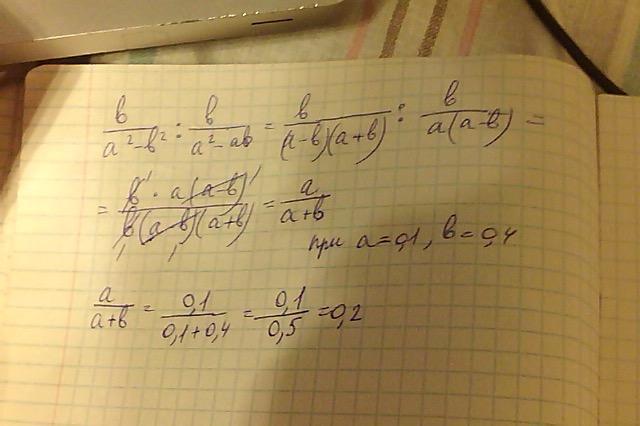 b/(a²-b²) : b/(a²-ab) = b/((a-b)(a+b)) : b/(a(a-b)) =
= (b · a(a-b))/(b(a-b)(a+b)) = a/(a+b)
при a=0,1, b=0,4
a/(a+b) = 0,1/(0,1+0,4) = 0,1/0,5 = 0,2